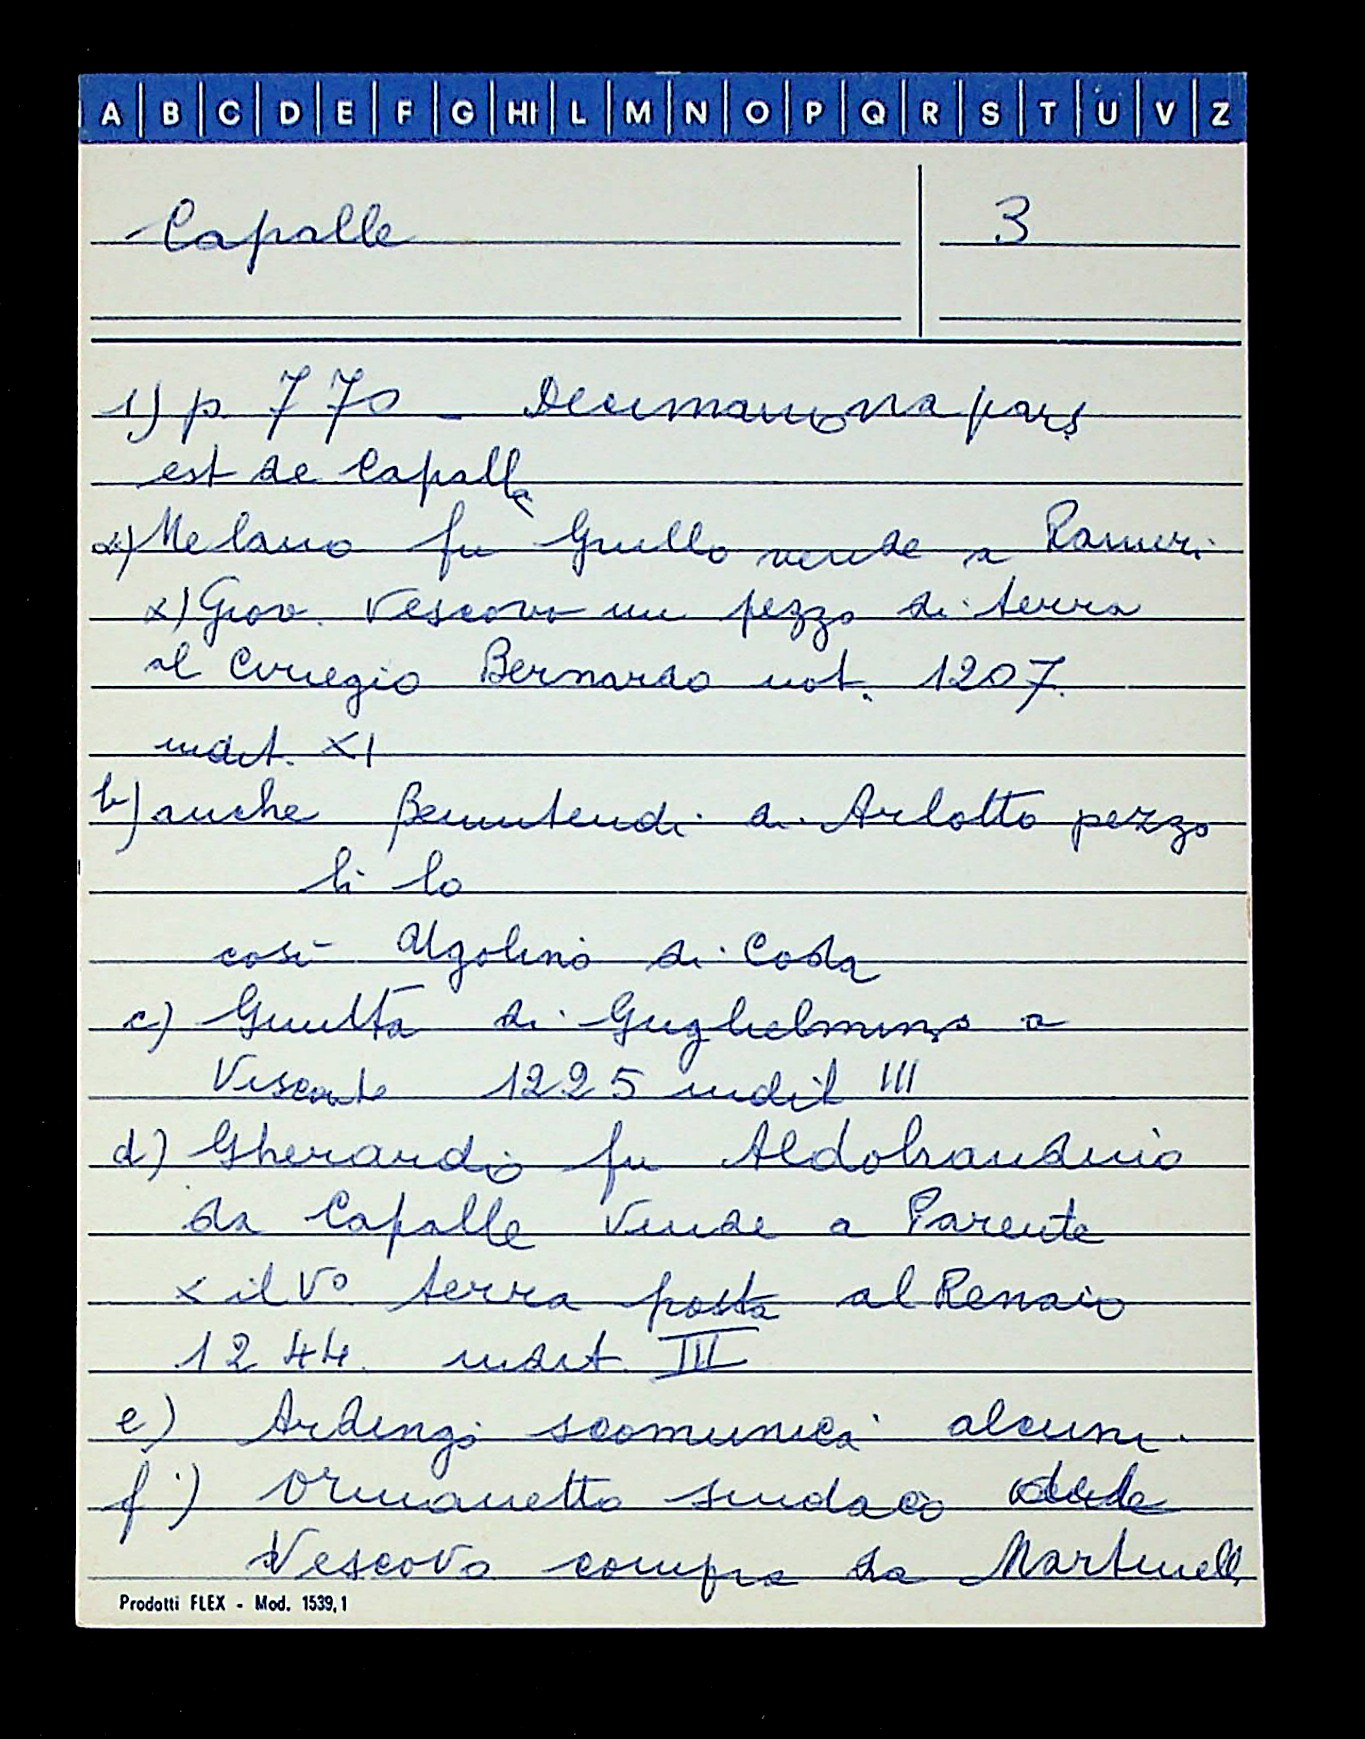 A B C D E F G HI L M N O P Q R S T U V Z
Capalle 3
1) p. 770 - Decimanona pars
est de Capalla
a) Melano fu Grullo vende a Ranieri
x) Giov. Vescovo un pezzo di terra
al Ciriegio Bernardo not. 1207.
indit. XI
b) anche Benintendi di Arlotto pezzo
li lo
così Ugolino di Coda
c) Giunta di Guglielmino a
Visconte 1225 indit III
d) Gherardo fu Aldobrandino
da Capalle vende a Parente
x il V° terra posta al Renaio
1244. indit. III
e) Ardingo scomunica alcuni.
f) Ormanetto sindaco del
Vescovo compra da Martinell
Prodotti FLEX - Mod. 1539,1